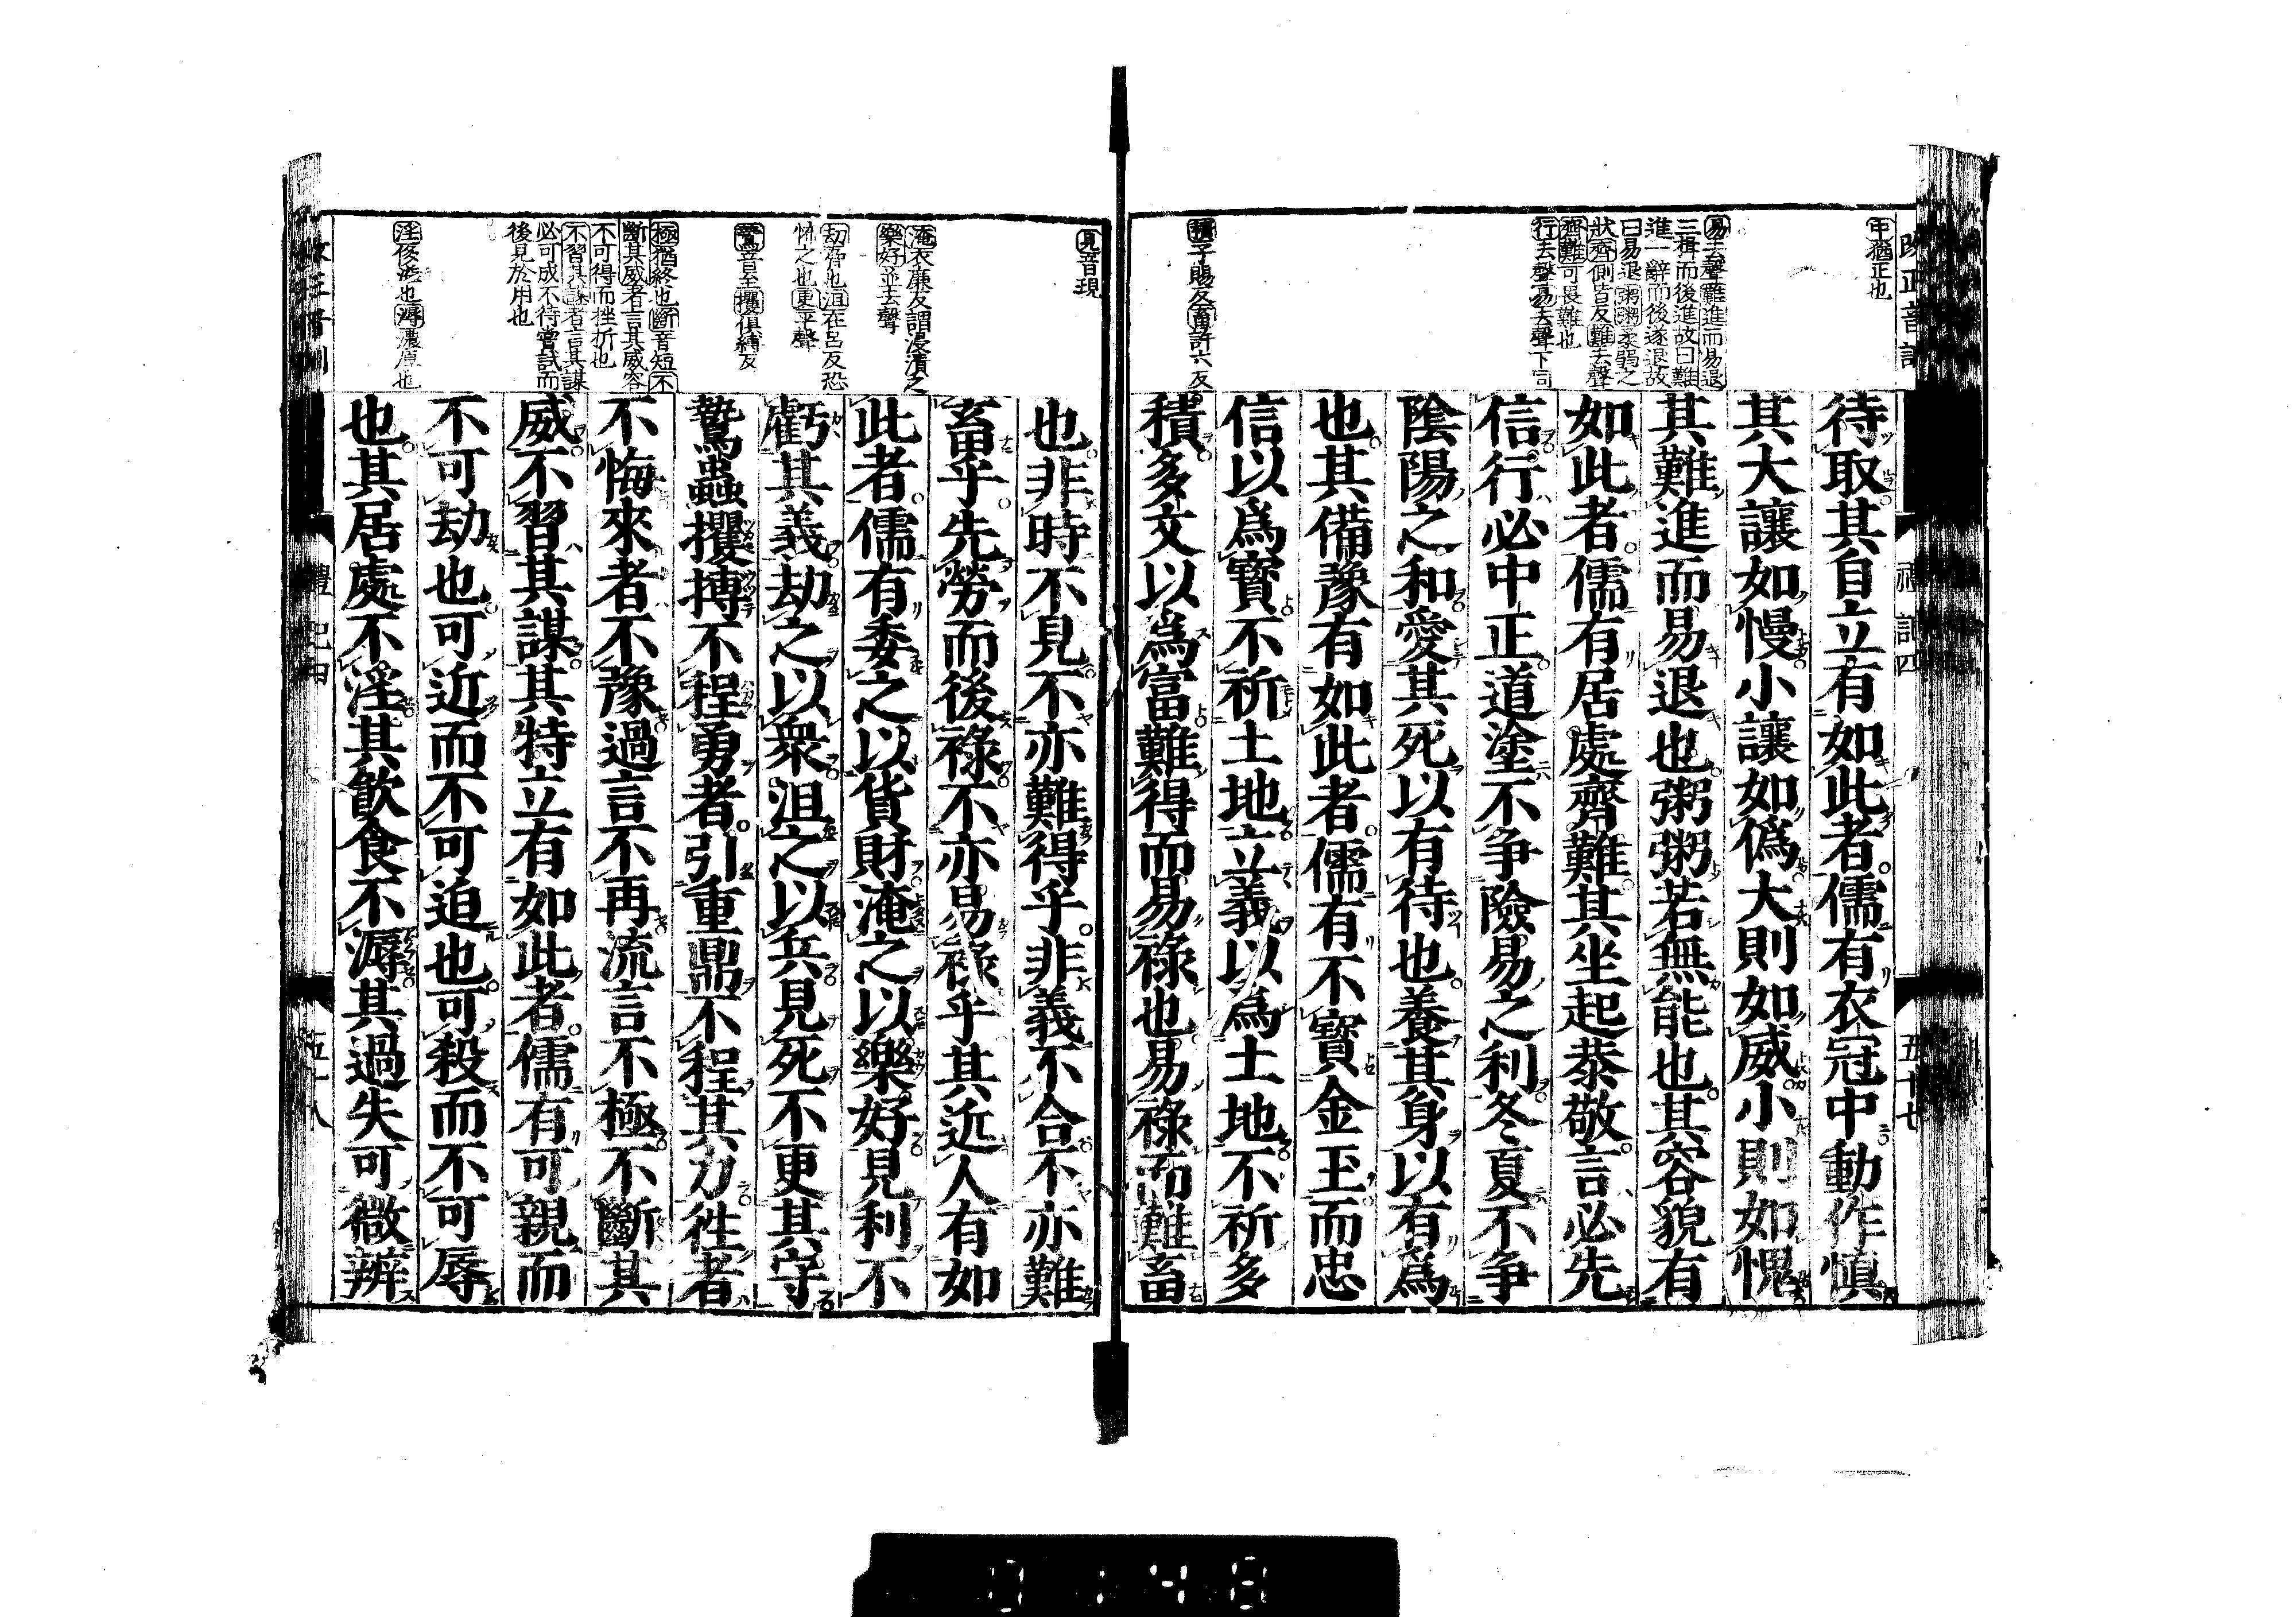 改正音訓
禮記四
五十七
中猶正也
易去聲難進而易退
三揖而後進故曰難
進一辭而後遂退故
曰易退粥粥柔弱之
狀齊側皆反難去聲
齊難可畏難也
行去聲易去聲下同
積子賜反畜許六反
待取其自立有如此者儒有衣冠中動作愼
其大讓如慢小讓如僞大則如威小則如愧
其難進而易退也粥粥若無能也其容貌有
如此者儒有居處齊難其坐起恭敬言必先
信行必中正道塗不爭險易之利冬夏不爭
陰陽之和愛其死以有待也養其身以有爲
也其備豫有如此者儒有不寶金玉而忠
信以爲寶不祈土地立義以爲土地不祈多
積多文以爲富難得而易祿也易祿而難畜
見音現
淹衣廉反謂浸漬之
樂好並去聲
劫脅也沮在呂反恐
怖之也更平聲
鷙音至攫俱縛反
極猶終也斷音短不
斷其威者言其威容
不可得而挫折也
不習其謀者言其謀
必可成不待嘗試而
後見於用也
淫侈溢也溽濃厚也
也非時不見不亦難得乎非義不合不亦難
畜乎先勞而後祿不亦易祿乎其近人有如
此者儒有委之以貨財淹之以樂好見利不
虧其義劫之以衆沮之以兵見死不更其守
鷙蟲攫搏不程勇者引重鼎不程其力往者
不悔來者不豫過言不再流言不極不斷其
威不習其謀其特立有如此者儒有可親而
不可劫也可近而不可迫也可殺而不可辱
也其居處不淫其飮食不溽其過失可微辨
禮記四
五十八
0148